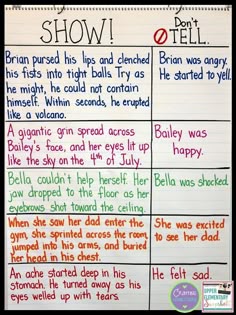 SHOW!
Don't
TELL.
Brian pursed his lips and clenched
his fists into tight balls. Try as
he might, he could not contain
himself. Within seconds, he erupted
like a volcano.
Brian was angry.
He started to yell.
A gigantic grin spread across
Bailey's face, and her eyes lit up
like the sky on the 4th of July.
Bailey was
happy.
Bella couldn't help herself. Her
jaw dropped to the floor as her
eyebrows shot toward the ceiling.
Bella was shocked.
When she saw her dad enter the
gym, she sprinted across the room,
jumped into his arms, and buried
her head in his chest.
She was excited
to see her dad.
An ache started deep in his
stomach. He turned away as his
eyes welled up with tears.
He felt sad.
UPPER
ELEMENTARY